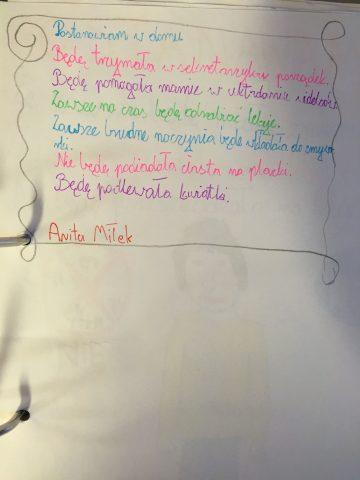 Postanowiam w domu
Będę trzymała w sekretarzyku porządek.
Będę pomagała mamie w układaniu
Zawsze na czas będę odrabiać lekcje.
Zawsze brudne naczynia będę wkładała do zmywar
ki.
Nie będę podjadała ciasta na placki.
Będę podlewała kwiatki.
Anita Miłek